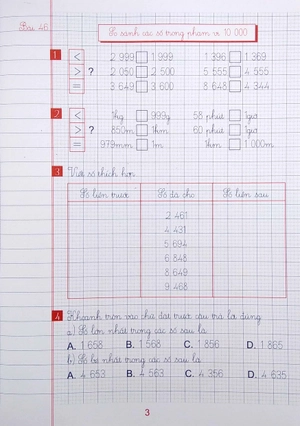 Bài 46
So sánh các số trong phạm vi 10 000
1 < > = ?
2 999 □ 1 999 1 396 □ 1 369
2 050 □ 2 500 5 555 □ 4 555
3 649 □ 3 600 8 648 □ 4 344
2 < > = ?
1kg □ 999g 58 phút □ 1giờ
850m □ 1km 60 phút □ 1giờ
979mm □ 1m 1km □ 1 000m
3 Viết số thích hợp
Số liền trước Số đã cho Số liền sau
2 461
4 431
5 694
6 848
8 649
9 468
4 Khoanh tròn vào chữ đặt trước câu trả lời đúng
a) Số lớn nhất trong các số sau là
A. 1 658 B. 1 568 C. 1 856 D. 1 865
b) Số bé nhất trong các số sau là
A. 4 653 B. 4 563 C. 4 356 D. 4 635
3